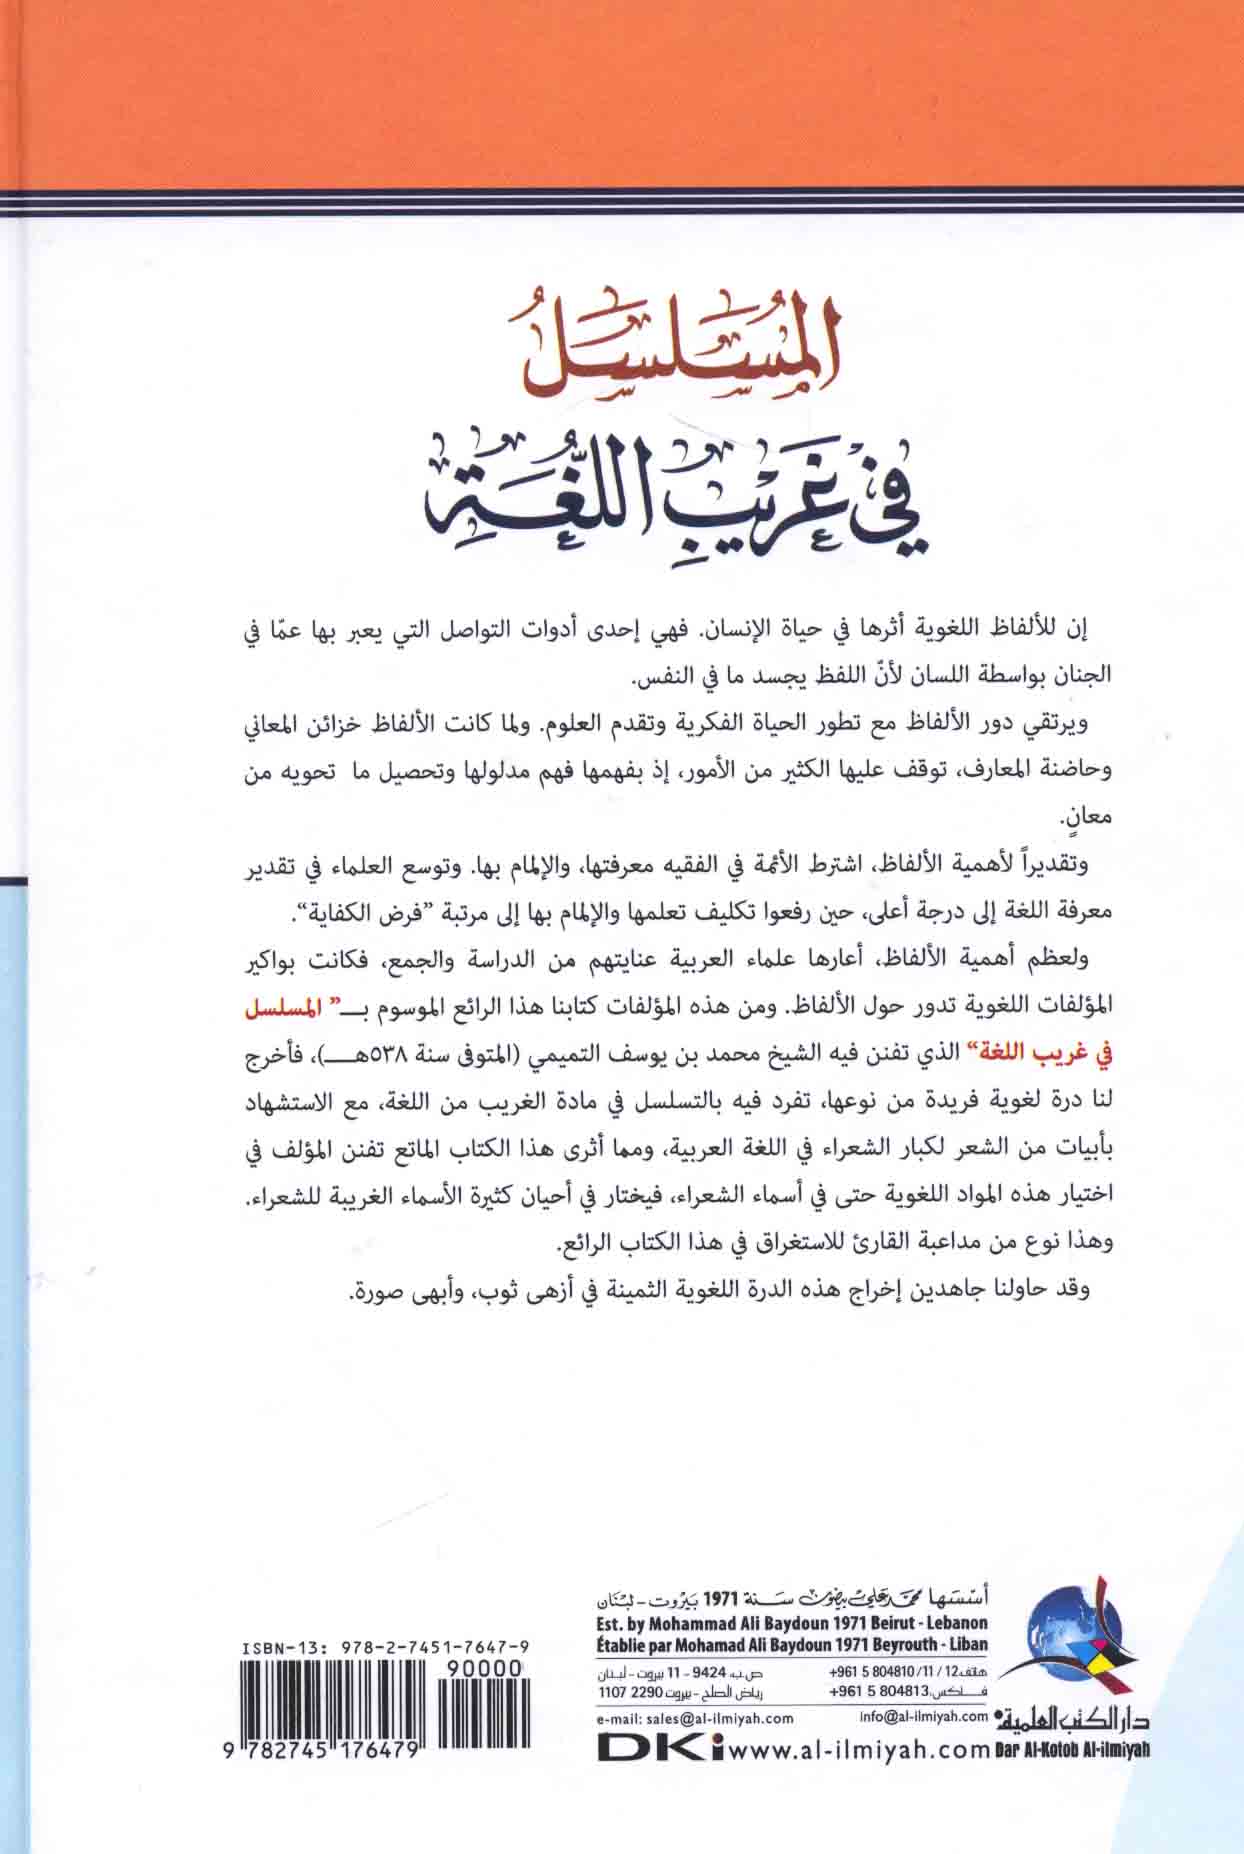 المُسَلسَلُ
في غَريبِ اللُّغَةِ
إن للألفاظ اللغوية أثرها في حياة الإنسان. فهي إحدى أدوات التواصل التي يعبر بها عمّا في
الجنان بواسطة اللسان لأنّ اللفظ يجسد ما في النفس.
ويرتقي دور الألفاظ مع تطور الحياة الفكرية وتقدم العلوم. ولما كانت الألفاظ خزائن المعاني
وحاضنة المعارف، توقف عليها الكثير من الأمور، إذ بفهمها فهم مدلولها وتحصيل ما تحويه من
معانٍ.
وتقديراً لأهمية الألفاظ، اشترط الأئمة في الفقيه معرفتها، والإلمام بها. وتوسع العلماء في تقدير
معرفة اللغة إلى درجة أعلى، حين رفعوا تكليف تعلمها والإلمام بها إلى مرتبة "فرض الكفاية".
ولعظم أهمية الألفاظ، أعارها علماء العربية عنايتهم من الدراسة والجمع، فكانت بواكير
المؤلفات اللغوية تدور حول الألفاظ. ومن هذه المؤلفات كتابنا هذا الرائع الموسوم بـ" المسلسل
في غريب اللغة" الذي تفنن فيه الشيخ محمد بن يوسف التميمي (المتوفى سنة ٥٣٨هـ)، فأخرج
لنا درة لغوية فريدة من نوعها، تفرد فيه بالتسلسل في مادة الغريب من اللغة، مع الاستشهاد
بأبيات من الشعر لكبار الشعراء في اللغة العربية، ومما أثرى هذا الكتاب الماتع تفنن المؤلف في
اختيار هذه المواد اللغوية حتى في أسماء الشعراء، فيختار في أحيان كثيرة الأسماء الغريبة للشعراء.
وهذا نوع من مداعبة القارئ للاستغراق في هذا الكتاب الرائع.
وقد حاولنا جاهدين إخراج هذه الدرة اللغوية الثمينة في أزهى ثوب، وأبهى صورة.
أسّسَها محمد علي بيضون سَنة 1971 بَيْروت - لبْنان
Est. by Mohammad Ali Baydoun 1971 Beirut - Lebanon
Établie par Mohamad Ali Baydoun 1971 Beyrouth - Liban
هاتف +961 5 804810/11/12 ص.ب 9424 - 11 بيروت - لبنان
فاكس +961 5 804813 رياض الصلح - بيروت 2290 1107
e-mail: sales@al-ilmiyah.com info@al-ilmiyah.com
DKi www.al-ilmiyah.com
دار الكتب العلمية
Dar Al-Kotob Al-ilmiyah
ISBN-13: 978-2-7451-7647-9
90000
9 782745 176479